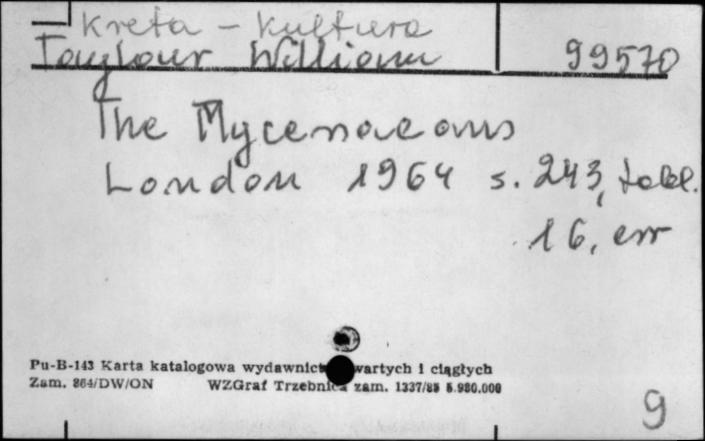 Kreta - Kultura
Taylour William 99570
The Mycenaeans
London 1964 s. 243, tabl.
16, err
Pu-B-143 Karta katalogowa wydawnictw zwartych i ciągłych
Zam. 864/DW/ON WZGraf Trzebnica zam. 1337/85 5.980.000
9